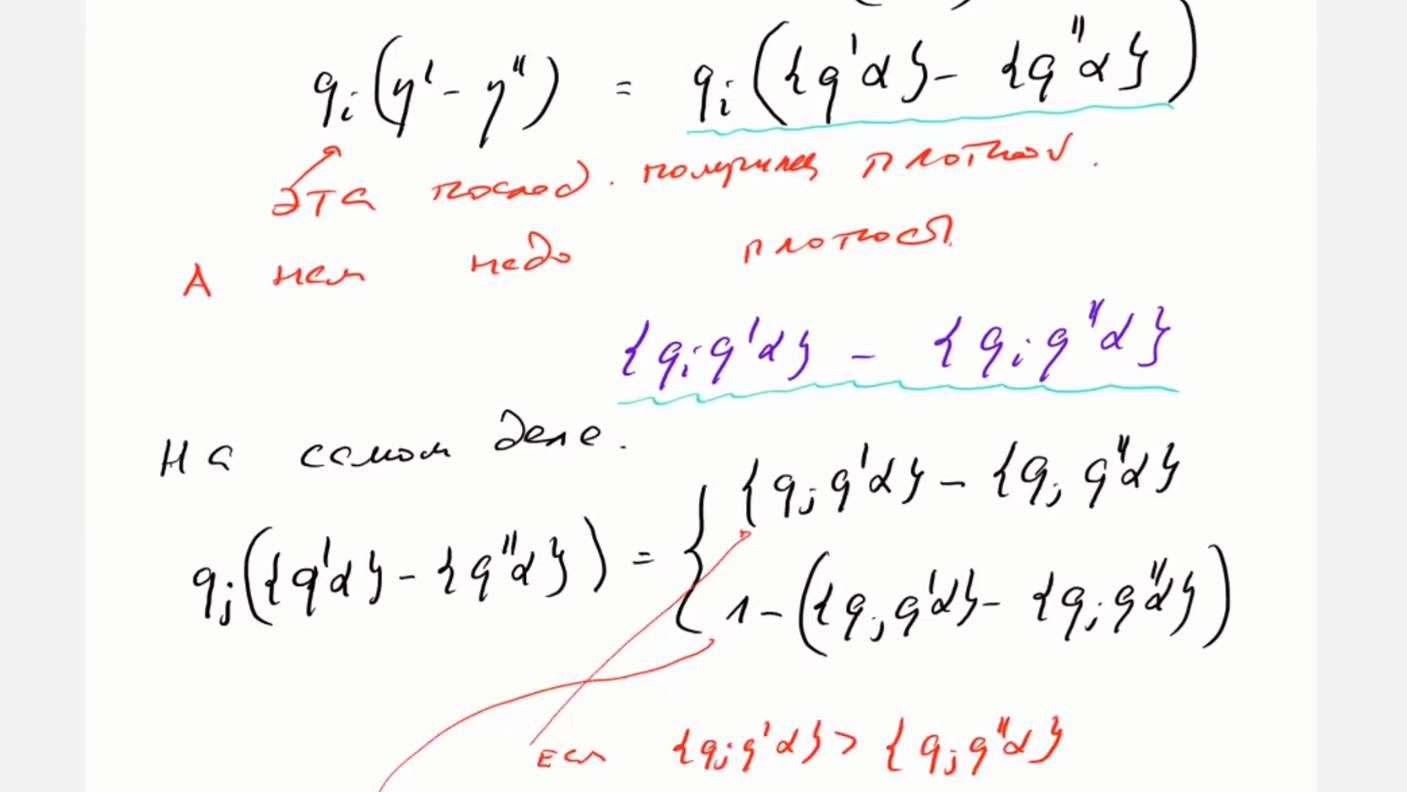 qᵢ(η' - η'') = qᵢ({q'α} - {q''α})
эта послед. получилась плотной.
А нам надо плотность
{qᵢq'α} - {qᵢq''α}
На самом деле.
qⱼ({q'α} - {q''α}) = { {qⱼq'α} - {qⱼq''α}
1 - ({qⱼq'α} - {qⱼq''α})
если {qⱼq'α} > {qⱼq''α}